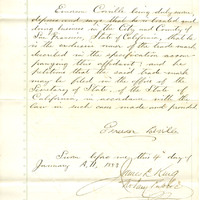 being duly sworn
deposes and says that he has resided and
doing business in the City and County of
San Francisco, State of California, that he
is the exclusive owner of the trade mark
described in the specification accom-
panying this affidavit; and he
petitions that the said trade mark
may be filed in the office of the
Secretary of State, of the State of
California, in accordance with the
law in such cases made and provided
Sworn before me, this 4th day of
January A.D. 188